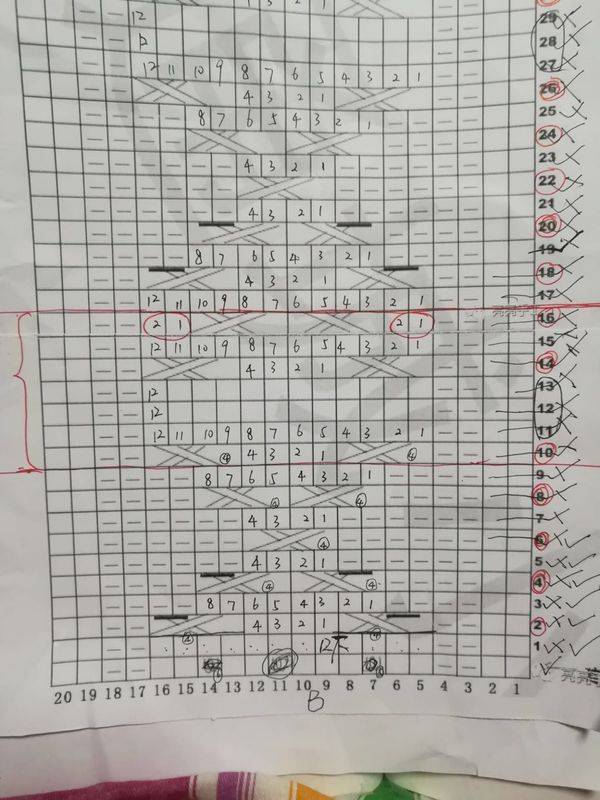 12 29
28
12 11 10 9 8 7 6 5 4 3 2 1 27
4 3 2 1 26
8 7 6 5 4 3 2 1 25
24
4 3 2 1 23
22
4 3 2 1 21
20
8 7 6 5 4 3 2 1 19
4 3 2 1 18
12 11 10 9 8 7 6 5 4 3 2 1 17
2 1 2 1 16
12 11 10 9 8 7 6 5 4 3 2 1 15
4 3 2 1 14
12 13
12 12
12 11 10 9 8 7 6 5 4 3 2 1 11
④ 4 3 2 1 ④ 10
8 7 6 5 4 3 2 1 9
④ ④ 8
4 3 2 1 7
④ 6
4 3 2 1 5
④ ④ 4
8 7 6 5 4 3 2 1 3
4 3 2 1 2
④ ④ 1
20 19 18 17 16 15 14 13 12 11 10 9 8 7 6 5 4 3 2 1
B